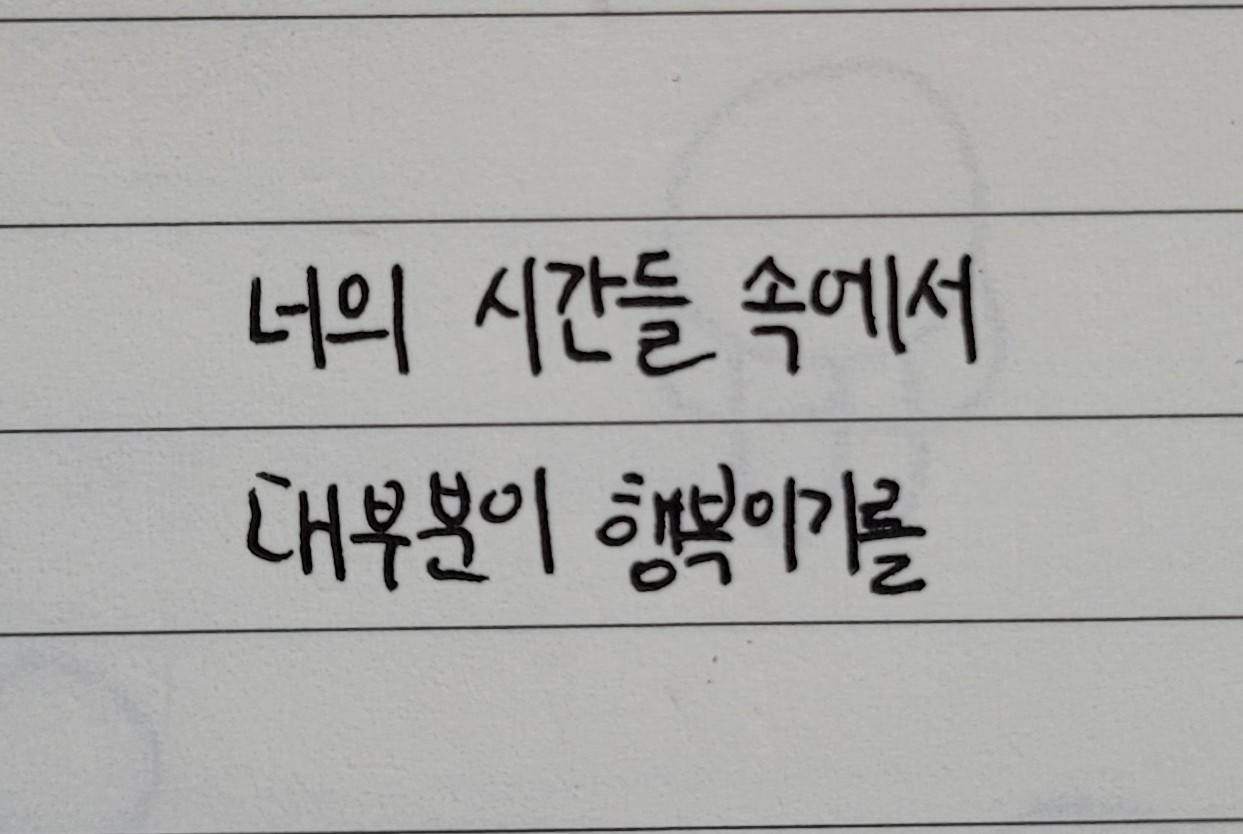 너의 시간들 속에서
대부분이 행복이기를